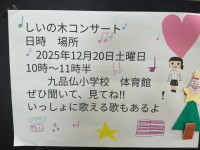 しいの木コンサート
日時　場所
2025年12月20日土曜日
10時～11時半
九品仏小学校　体育館
ぜひ聞いて、見てね!!
いっしょに歌える歌もあるよ